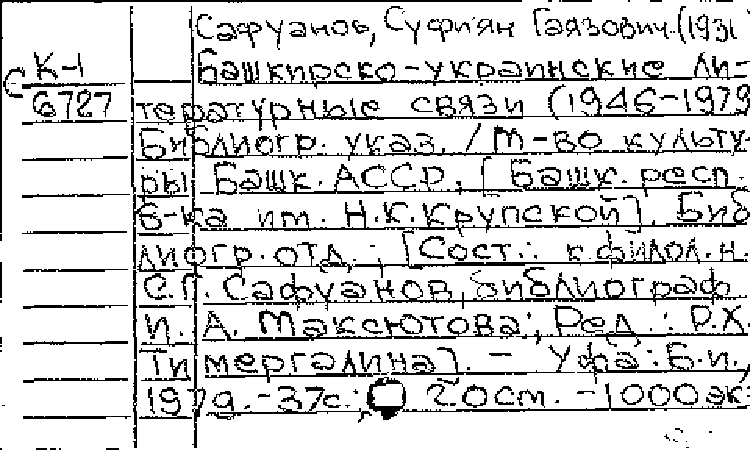 Сафуанов, Суфиян Гаязович.(1931
К-1
С
6727
Башкирско-украинские ли-
тературные связи (1946-1979
Библиогр. указ. / М-во культу-
ры Башк. АССР, [Башк. респ.
б-ка им. Н.К.Крупской]. Биб
лиогр. отд.; [Сост.: к.филол.н.
С.Г. Сафуанов, библиограф
И. А. Максютова; Ред.: Р.Х.
Тимергалина]. - Уфа: Б.и.,
1979. - 37с.; 20см. - 1000 эк